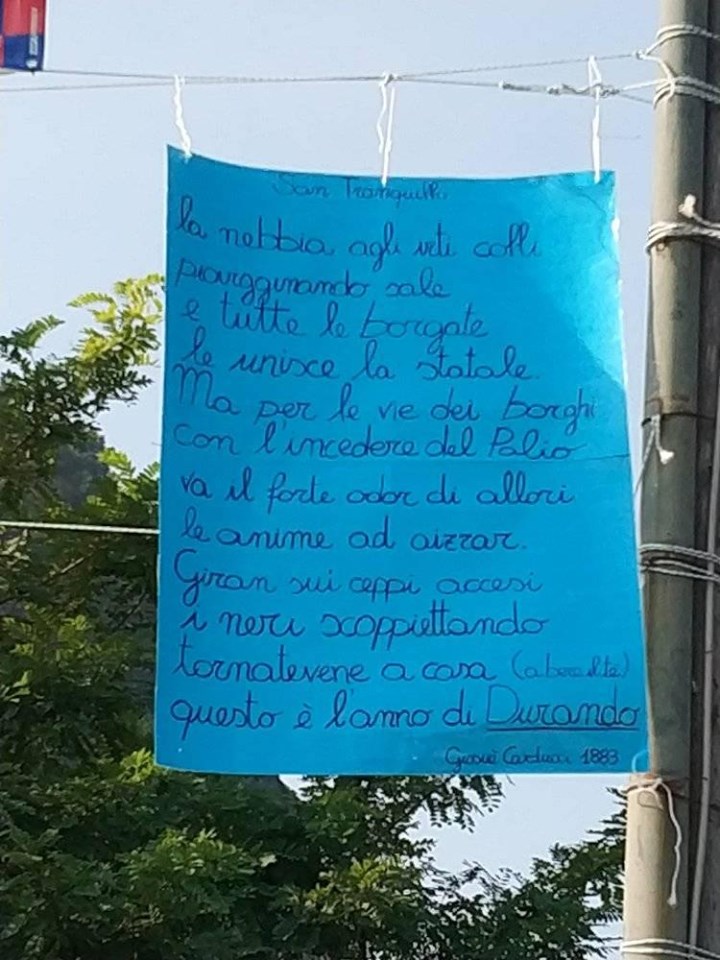 San Tranquillo
la nebbia agli irti colli
piovigginando sale
e tutte le borgate
le unisce la statale.
Ma per le vie dei borghi
con l'incedere del Palio
va il forte odor di allori
le anime ad aizzar.
Giran sui ceppi accesi
i neri scoppiettando
tornatevene a casa (a bere il tè)
questo è l'anno di Durando
Giosuè Carducci 1883